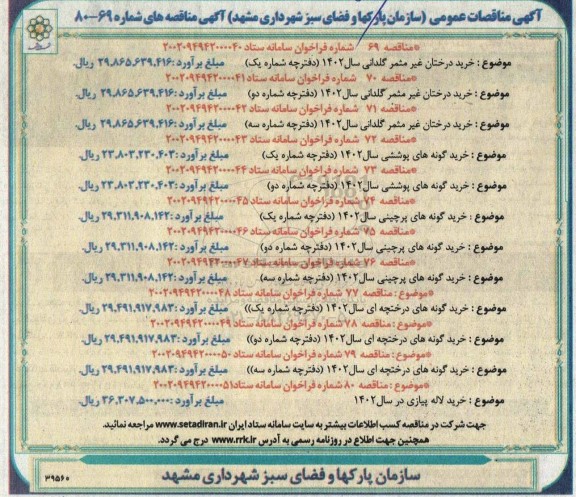 آگهی مناقصات عمومی (سازمان پارکها و فضای سبز شهرداری مشهد) آگهی مناقصه های شماره ۶۹-۸۰
*مناقصه ۶۹ شماره فراخوان سامانه ستاد ۲۰۰۲۰۹۴۹۴۲۰۰۰۰۴۰
موضوع : خرید درختان غیر مثمر گلدانی سال۱۴۰۲ (دفترچه شماره یک) مبلغ برآورد :۲۹،۸۶۵،۶۳۹،۴۱۶ ریال.
*مناقصه ۷۰ شماره فراخوان سامانه ستاد ۲۰۰۲۰۹۴۹۴۲۰۰۰۰۴۱
موضوع : خرید درختان غیر مثمر گلدانی سال۱۴۰۲ (دفترچه شماره دو) مبلغ برآورد :۲۹،۸۶۵،۶۳۹،۴۱۶ ریال.
*مناقصه ۷۱ شماره فراخوان سامانه ستاد ۲۰۰۲۰۹۴۹۴۲۰۰۰۰۴۲
موضوع : خرید درختان غیر مثمر گلدانی سال۱۴۰۲ (دفترچه شماره سه) مبلغ برآورد :۲۹،۸۶۵،۶۳۹،۴۱۶ ریال.
*مناقصه ۷۲ شماره فراخوان سامانه ستاد ۲۰۰۲۰۹۴۹۴۲۰۰۰۰۴۳
موضوع : خرید گونه های پوششی سال۱۴۰۲ (دفترچه شماره یک) مبلغ برآورد :۲۳،۸۰۳،۲۳۰،۴۰۳ ریال.
*مناقصه ۷۳ شماره فراخوان سامانه ستاد ۲۰۰۲۰۹۴۹۴۲۰۰۰۰۴۴
موضوع : خرید گونه های پوششی سال۱۴۰۲ (دفترچه شماره دو) مبلغ برآورد :۲۳،۸۰۳،۲۳۰،۴۰۳ ریال.
*مناقصه ۷۴ شماره فراخوان سامانه ستاد ۲۰۰۲۰۹۴۹۴۲۰۰۰۰۴۵
موضوع : خرید گونه های پرچینی سال۱۴۰۲ (دفترچه شماره یک) مبلغ برآورد :۲۹،۳۱۱،۹۰۸،۱۴۲ ریال.
*مناقصه ۷۵ شماره فراخوان سامانه ستاد ۲۰۰۲۰۹۴۹۴۲۰۰۰۰۴۶
موضوع : خرید گونه های پرچینی سال۱۴۰۲ (دفترچه شماره دو) مبلغ برآورد :۲۹،۳۱۱،۹۰۸،۱۴۲ ریال.
*مناقصه ۷۶ شماره فراخوان سامانه ستاد ۲۰۰۲۰۹۴۹۴۲۰۰۰۰۴۷
موضوع : خرید گونه های پرچینی سال۱۴۰۲ (دفترچه شماره سه) مبلغ برآورد :۲۹،۳۱۱،۹۰۸،۱۴۳ ریال.
*موضوع : مناقصه ۷۷ شماره فراخوان سامانه ستاد ۲۰۰۲۰۹۴۹۴۲۰۰۰۰۴۸
موضوع : خرید گونه های درختچه ای سال۱۴۰۲ (دفترچه شماره یک)) مبلغ برآورد :۲۹،۴۹۱،۹۱۷،۹۸۳ ریال.
*موضوع : مناقصه ۷۸ شماره فراخوان سامانه ستاد ۲۰۰۲۰۹۴۹۴۲۰۰۰۰۴۹
موضوع : خرید گونه های درختچه ای سال۱۴۰۲ (دفترچه شماره دو)) مبلغ برآورد :۲۹،۴۹۱،۹۱۷،۹۸۳ ریال.
*موضوع : مناقصه ۷۹ شماره فراخوان سامانه ستاد ۲۰۰۲۰۹۴۹۴۲۰۰۰۰۵۰
موضوع : خرید گونه های درختچه ای سال۱۴۰۲ (دفترچه شماره سه)) مبلغ برآورد :۲۹،۴۹۱،۹۱۷،۹۸۳ ریال.
*موضوع : مناقصه ۸۰ شماره فراخوان سامانه ستاد ۲۰۰۲۰۹۴۹۴۲۰۰۰۰۵۱
موضوع : خرید لاله پیازی در سال۱۴۰۲ مبلغ برآورد :۳۶،۳۰۷،۵۰۰،۰۰۰ ریال.
جهت شرکت در مناقصه کسب اطلاعات بیشتر به سایت سامانه ستاد ایران www.setadiran.ir مراجعه نمائید.
همچنین جهت اطلاع در روزنامه رسمی به آدرس www.rrk.ir درج می گردد.
سازمان پارکها و فضای سبز شهرداری مشهد
۳۹۵۶۰